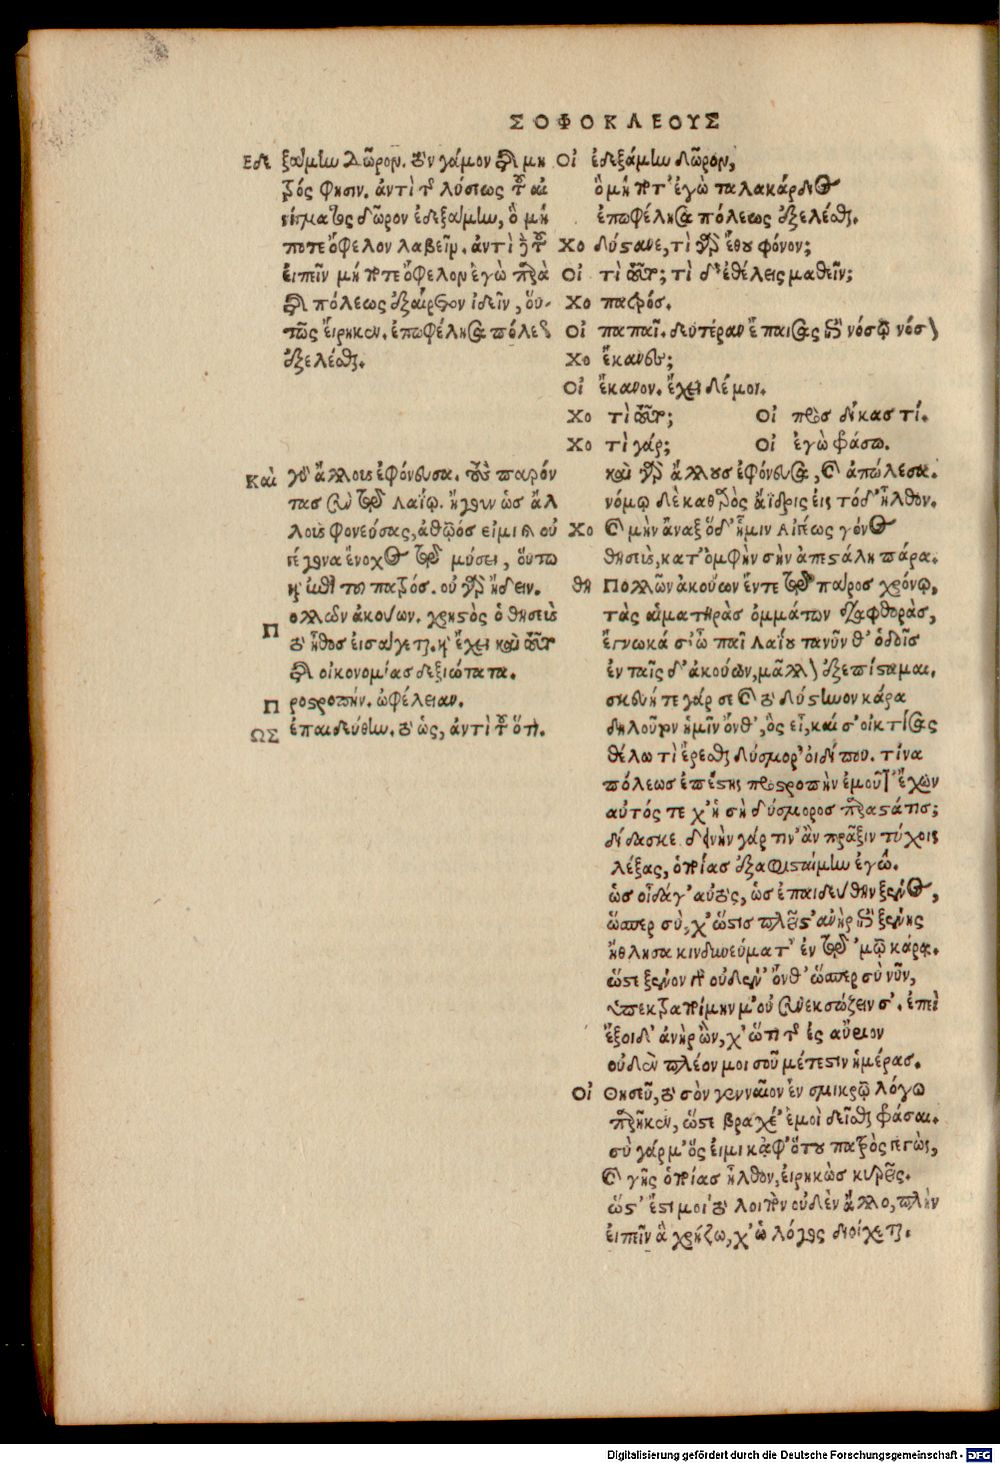 ΣΟΦΟΚΛΕΟΥΣ
Εδε ξάμην δῶρον. τὸν γάμον διὰ μη
τρός φησιν. ἀντὶ τοῦ λύσεως τοῦ αἰ
νίγματος δῶρον ἐδεξάμην, ὃ μή
ποτε ὤφελον λαβεῖν. ἀντὶ δὲ τοῦ
εἰπεῖν μή ποτε ὤφελον ἐγὼ παρὰ
πόλεως ἐξαίρετον ἰδεῖν, οὕ-
τως εἴρηκεν. ἐπωφέλησα πόλεος
ἐξελέσθαι.
Καὶ γὰρ ἄλλους ἐφόνευσα. τοὺς παρόν
τας σὺν τῷ Λαΐῳ. ἤγουν ὡς ἄλ
λους φονεύσας, ἀθῷός εἰμι καὶ οὐ
γέγονα ἔνοχος τῷ μύσει, οὕτω
καὶ ἐπὶ τοῦ πατρός. οὐ γὰρ ᾔδειν.
Π ολλῶν ἀκούων. χρηστὸς ὁ θησεὺς
τὸ ἦθος εἰσάγεται. καὶ ἔχει καὶ τοῦτο
οἰκονομίας δεξιώτατα.
Π ροστροπήν. ὠφέλειαν.
ΩΣ ἐπαιδεύθην. τὸ ὡς, ἀντὶ τοῦ ὅτι.
Οἰ ἐδεξάμην δῶρον,
ὃ μή ποτ' ἐγὼ ταλακάρδιος
ἐπωφέλησα πόλεως ἐξελέσθαι.
Χο δύστανε, τί γὰρ ἔθου φόνον;
Οἰ τί τοῦτο; τί δ' ἐθέλεις μαθεῖν;
Χο πατρός.
Οἰ παπαῖ. δευτέραν ἔπαισας ἐπὶ νόσῳ νόσον
Χο ἔκανες;
Οἰ ἔκανον. ἔχει δέ μοι.
Χο τί τοῦτο; Οἰ πρὸς δίκας τί.
Χο τί γάρ; Οἰ ἐγὼ φράσω.
καὶ γὰρ ἄλλους ἐφόνευσα, καὶ ἀπώλεσα.
νόμῳ δὲ καθαρὸς ἄϊδρις εἰς τόδ' ἦλθον.
Χο καὶ μὴν ἄναξ ὅδ' ἡμιν Αἰγέως γόνος
θησεὺς, κατ' ὀμφὴν σὴν ἀπεστάλη πάρα.
θη Πολλῶν ἀκούων ἔν τε τῷ πάρος χρόνῳ,
τὰς αἱματηρὰς ὀμμάτων διαφθορὰς,
ἔγνωκά σ' ὦ παῖ Λαΐου τανῦν θ' ὁδοῖς
ἐν ταῖς δ' ἀκούων, μᾶλλον ἐξεπίσταμαι.
σκευή τε γάρ σε καὶ τὸ δύστηνον κάρα
δηλοῦτον ἡμῖν ὄνθ', ὃς εἶ, καί σ' οἰκτίσας
θέλω τι ἔρεσθαι δύσμορ' οἰδίπου. τίνα
πόλεως ἐπέστης προστροπὴν ἐμοῦ τ' ἔχων
αὐτός τε χ' ἡ σὴ δύσμορος παραστάτις;
δίδασκε. δεινὴν γάρ τιν' ἂν πρᾶξιν τύχοις
λέξας, ὁποίας ἐξαφισταίμην ἐγώ.
ὡς οἶδά γ' αὐτὸς, ὡς ἐπαιδεύθην ξένος,
ὥσπερ σὺ, χ' ὥστις πλεῖστ' ἀνὴρ ἐπὶ ξένης
ἤθλησα κινδυνεύματ' ἐν τῷ 'μῷ κάρᾳ.
ὥστε ξένον γ' οὐδέν' ὄνθ' ὥσπερ σὺ νῦν,
ὑπεκτραποίμην μ' οὐ συνεκσώζειν σ'. ἐπεὶ
ἔξοιδ' ἀνὴρ ὢν, χ' ὥτι τῆς ἐς αὔριον
οὐδὲν πλέον μοι σοῦ μέτεστιν ἡμέρας.
Οἰ Θησεῦ, τὸ σὸν γενναῖον ἐν σμικρῷ λόγῳ
παρῆκεν, ὥστε βραχέ' ἐμοὶ δεῖσθαι φράσαι.
σὺ γάρ μ' ὅς εἰμι κἀφ' ὅτου πατρὸς γεγὼς,
καὶ γῆς ὁποίας ἦλθον, εἰρηκὼς κυρεῖς.
ὥστ' ἔστι μοι τὸ λοιπὸν οὐδὲν ἄλλο, πλὴν
εἰπεῖν ἃ χρῄζω, χ' ὡ λόγος διοίχεται.
Digitalisierung gefördert durch die Deutsche Forschungsgemeinschaft - DFG